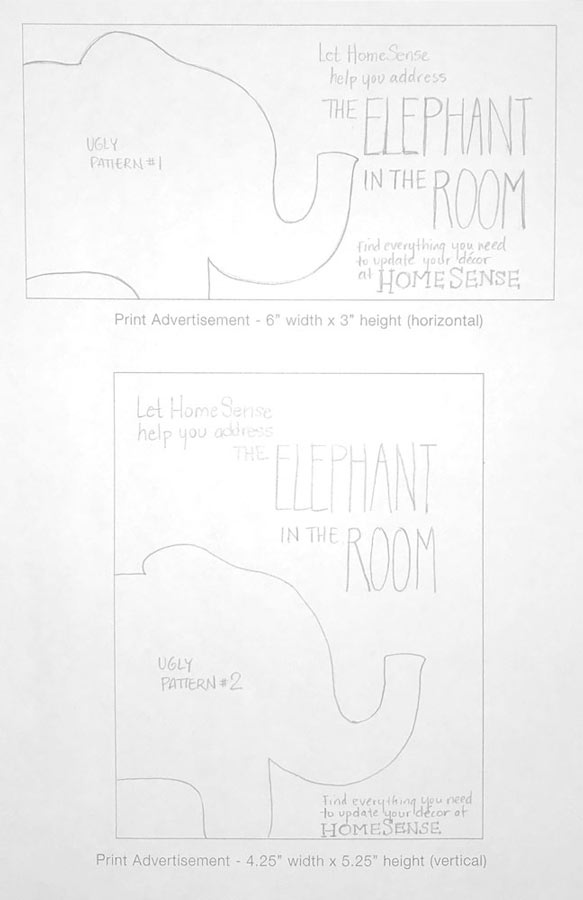 Let HomeSense
help you address
THE ELEPHANT
IN THE ROOM
UGLY
PATTERN #1
Find everything you need
to update your décor
at HOMESENSE
Print Advertisement - 6" width x 3" height (horizontal)
Let HomeSense
help you address
THE ELEPHANT
IN THE ROOM
UGLY
PATTERN #2
Find everything you need
to update your décor at
HOMESENSE
Print Advertisement - 4.25" width x 5.25" height (vertical)